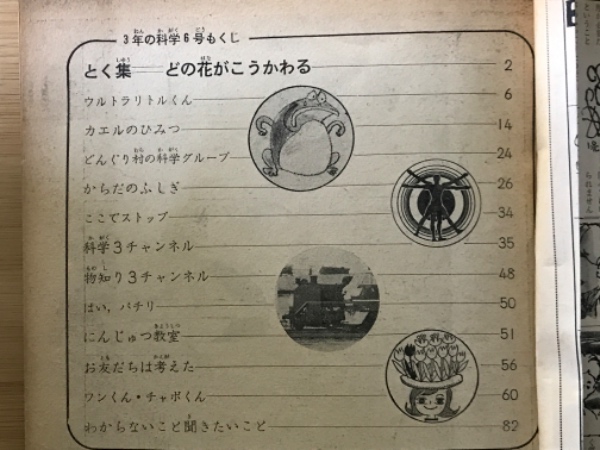 3年の科学6号もくじ
とく集 どの花がこうかわる 2
ウルトラリトルくん 6
カエルのひみつ 14
どんぐり村の科学グループ 24
からだのふしぎ 26
ここでストップ 34
科学3チャンネル 35
物知り3チャンネル 48
はい,パチリ 50
にんじゅつ教室 51
お友だちは考えた 56
ワンくん・チャボくん 60
わからないこと聞きたいこと 82
られません